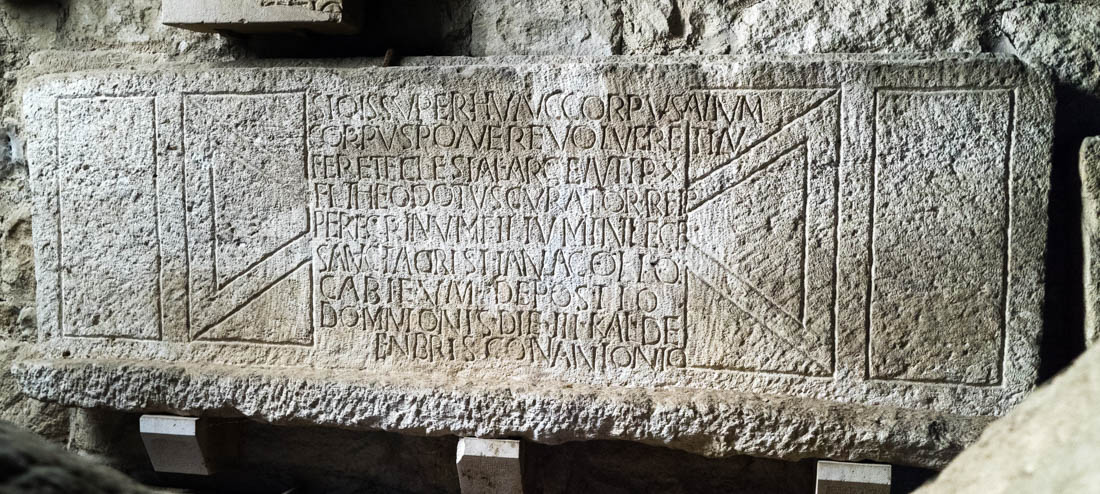 SIQIS SVPER HVNVC CORPVS ALIVM
CORPVS PONERE VOLVERET IN
FERET ECLESIAE ARGENTI P X
FL THEODOTVS CVRATOR REIP
PEREGRINVM FILIVM IN LEGE
SANCTA CRISTIANA COLLO
CABI EVM DEPOSTIO
DOMNIONIS DIE III KAL DE
ENBRIS CON ANTONIO